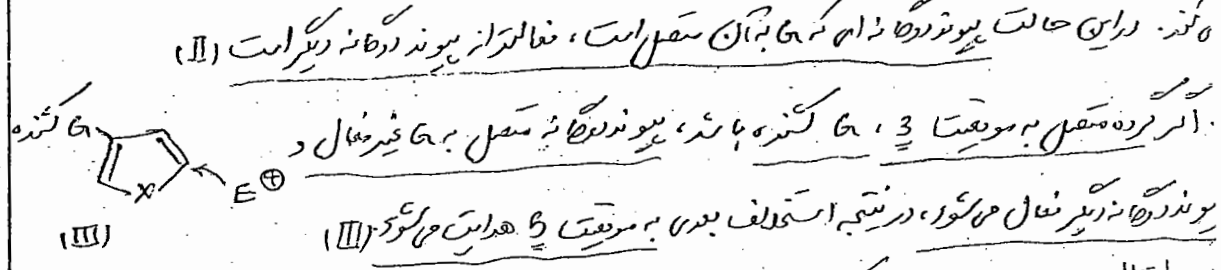 می‌کند. در این حالت پیوند دوگانه ای که G به آن متصل است، فعالتر از پیوند دوگانه دیگر است (II)
اگر گروه متصل به موقعیت 3، G کشنده باشد، پیوند دوگانه متصل به G غیرفعال و
پیوند دوگانه دیگر فعال می‌شود، در نتیجه استخلاف بعدی به موقعیت 5 هدایت می‌شود. (III)
G کشنده
X
E⊕
(III)